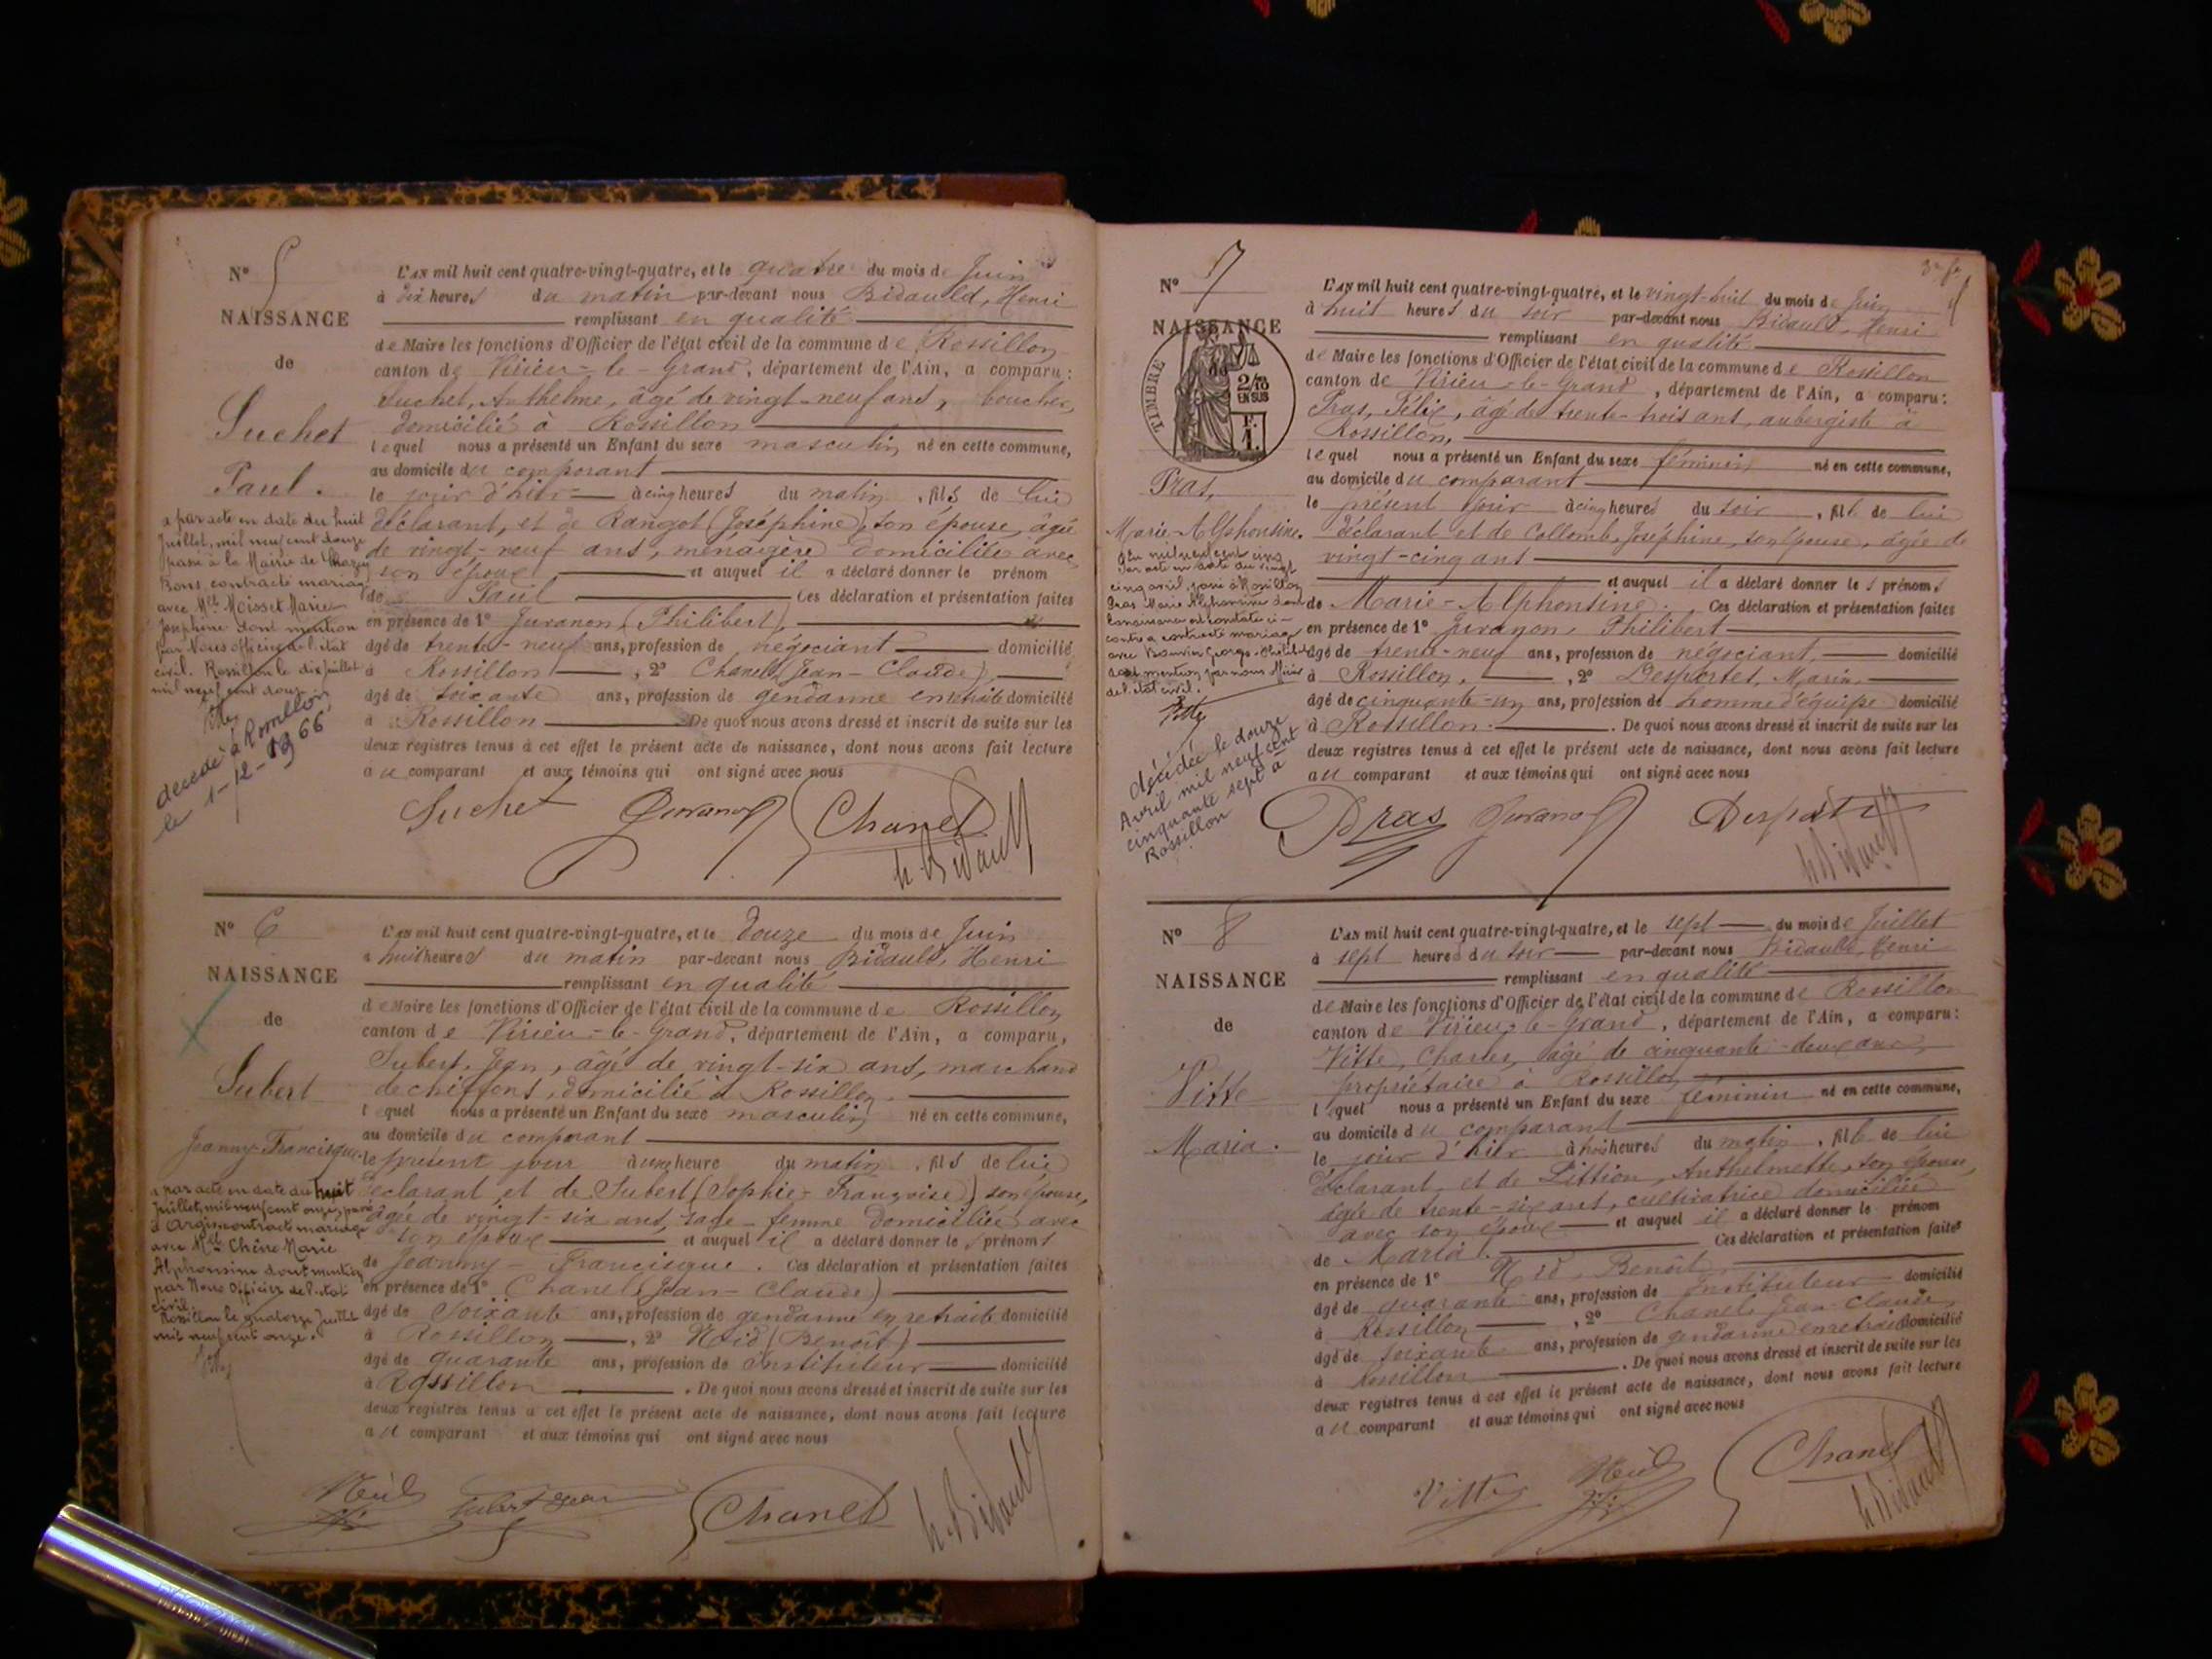 N° 5
NAISSANCE
de
Suchet
Paul.
a par acte en date du huit
Juillet, mil neuf cent douze
passé à la Mairie de
Bons contracté mariage
avec Melle Moisset Marie
Joséphine dont mention
par Nous officier de l'état
civil. Rossillon le dix juillet
mil neuf cent douze
décédé à Rossillon
le 1-12-1966
L'AN mil huit cent quatre-vingt-quatre, et le quatre du mois de Juin
à dix heures du matin par-devant nous Bidauld, Henri
remplissant en qualité
de Maire les fonctions d'Officier de l'état civil de la commune de Rossillon
canton de Virieu-le-Grand, département de l'Ain, a comparu:
Suchet, Anthelme, âgé de vingt-neuf ans, boucher,
domicilié à Rossillon
lequel nous a présenté un Enfant du sexe masculin né en cette commune,
au domicile du comparant
le jour d'hier à cinq heures du matin, fils de lui
déclarant, et de Rangot (Joséphine), son épouse, âgée
de vingt-neuf ans, ménagère domiciliée avec
son époux, et auquel il a déclaré donner le prénom
de Paul Ces déclaration et présentation faites
en présence de 1° Juranon (Philibert),
âgé de trente-neuf ans, profession de négociant domicilié
à Rossillon, 2° Chanel (Jean-Claude),
âgé de soixante ans, profession de gendarme en retraite domicilié
à Rossillon De quoi nous avons dressé et inscrit de suite sur les
deux registres tenus à cet effet le présent acte de naissance, dont nous avons fait lecture
au comparant et aux témoins qui ont signé avec nous
Suchet Juranon Chanel
h. Bidauld
N° 6
NAISSANCE
de
Subert
Jeanny-Francisque.
a par acte en date du huit
Juillet, mil neuf cent onze, passé
à Argis, contracté mariage
avec Melle Chêne Marie
Alphonsine dont mention
par Nous Officier de l'état
civil.
Rossillon le quatorze Juillet
mil neuf cent onze.
L'AN mil huit cent quatre-vingt-quatre, et le douze du mois de Juin
à huit heures du matin par-devant nous Bidauld, Henri
remplissant en qualité
de Maire les fonctions d'Officier de l'état civil de la commune de Rossillon
canton de Virieu-le-Grand, département de l'Ain, a comparu,
Subert, Jean, âgé de vingt-six ans, marchand
de chiffons, domicilié à Rossillon.
lequel nous a présenté un Enfant du sexe masculin né en cette commune,
au domicile du comparant
le présent jour à une heure du matin, fils de lui
déclarant et de Subert (Sophie-Françoise) son épouse,
âgée de vingt-six ans, sage-femme domiciliée avec
son époux et auquel il a déclaré donner les prénoms
de Jeanny-Francisque. Ces déclaration et présentation faites
en présence de 1° Chanel (Jean-Claude)
âgé de soixante ans, profession de gendarme en retraite domicilié
à Rossillon, 2° Nid (Benoît)
âgé de quarante ans, profession de Instituteur domicilié
à Rossillon. De quoi nous avons dressé et inscrit de suite sur les
deux registres tenus à cet effet le présent acte de naissance, dont nous avons fait lecture
au comparant et aux témoins qui ont signé avec nous
Subert Jean Chanel h. Bidauld
N° 7
NAISSANCE
de
TIMBRE
2/10
EN SUS
F.
1.
Pras,
Marie-Alphonsine.
L'an mil neuf cent cinq
par acte en date du vingt
cinq avril, passé à Rossillon
Pras Marie Alphonsine dont
la naissance est constatée ci-
contre a contracté mariage
avec Georges
dont mention par nous Maire
de l'état civil.
décédée le douze
Avril mil neuf cent
cinquante sept à
Rossillon
L'AN mil huit cent quatre-vingt-quatre, et le vingt-huit du mois de Juin
à huit heures du soir par-devant nous Bidauld, Henri
remplissant en qualité
de Maire les fonctions d'Officier de l'état civil de la commune de Rossillon
canton de Virieu-le-Grand, département de l'Ain, a comparu:
Pras, Félix, âgé de trente-trois ans, aubergiste à
Rossillon,
lequel nous a présenté un Enfant du sexe féminin né en cette commune,
au domicile du comparant
le présent jour à cinq heures du soir, fille de lui
déclarant et de Collomb, Joséphine, son épouse, âgée de
vingt-cinq ans
et auquel il a déclaré donner les prénoms
de Marie-Alphonsine. Ces déclaration et présentation faites
en présence de 1° Juranon, Philibert
âgé de trente-neuf ans, profession de négociant, domicilié
à Rossillon, 2° Desportes, Marin,
âgé de cinquante-un ans, profession de homme d'équipe domicilié
à Rossillon. De quoi nous avons dressé et inscrit de suite sur les
deux registres tenus à cet effet le présent acte de naissance, dont nous avons fait lecture
au comparant et aux témoins qui ont signé avec nous
Pras Juranon Desportes
h. Bidauld
N° 8
NAISSANCE
de
Vitte
Maria.
L'AN mil huit cent quatre-vingt-quatre, et le sept du mois de Juillet
à sept heures du soir par-devant nous Bidauld, Henri
remplissant en qualité
de Maire les fonctions d'Officier de l'état civil de la commune de Rossillon
canton de Virieu-le-Grand, département de l'Ain, a comparu:
Vitte, Charles, âgé de cinquante-deux ans,
propriétaire à Rossillon
lequel nous a présenté un Enfant du sexe féminin né en cette commune,
au domicile du comparant
le jour d'hier à trois heures du matin, fille de lui
déclarant, et de Littion, Anthelmette, son épouse,
âgée de trente-six ans, cultivatrice domiciliée
avec son époux et auquel il a déclaré donner le prénom
de Maria. Ces déclaration et présentation faites
en présence de 1° Nid, Benoît
âgé de quarante ans, profession de Instituteur domicilié
à Rossillon, 2° Chanel, Jean-Claude,
âgé de soixante ans, profession de gendarme en retraite domicilié
à Rossillon. De quoi nous avons dressé et inscrit de suite sur les
deux registres tenus à cet effet le présent acte de naissance, dont nous avons fait lecture
au comparant et aux témoins qui ont signé avec nous
Vitte Chanel
h. Bidauld